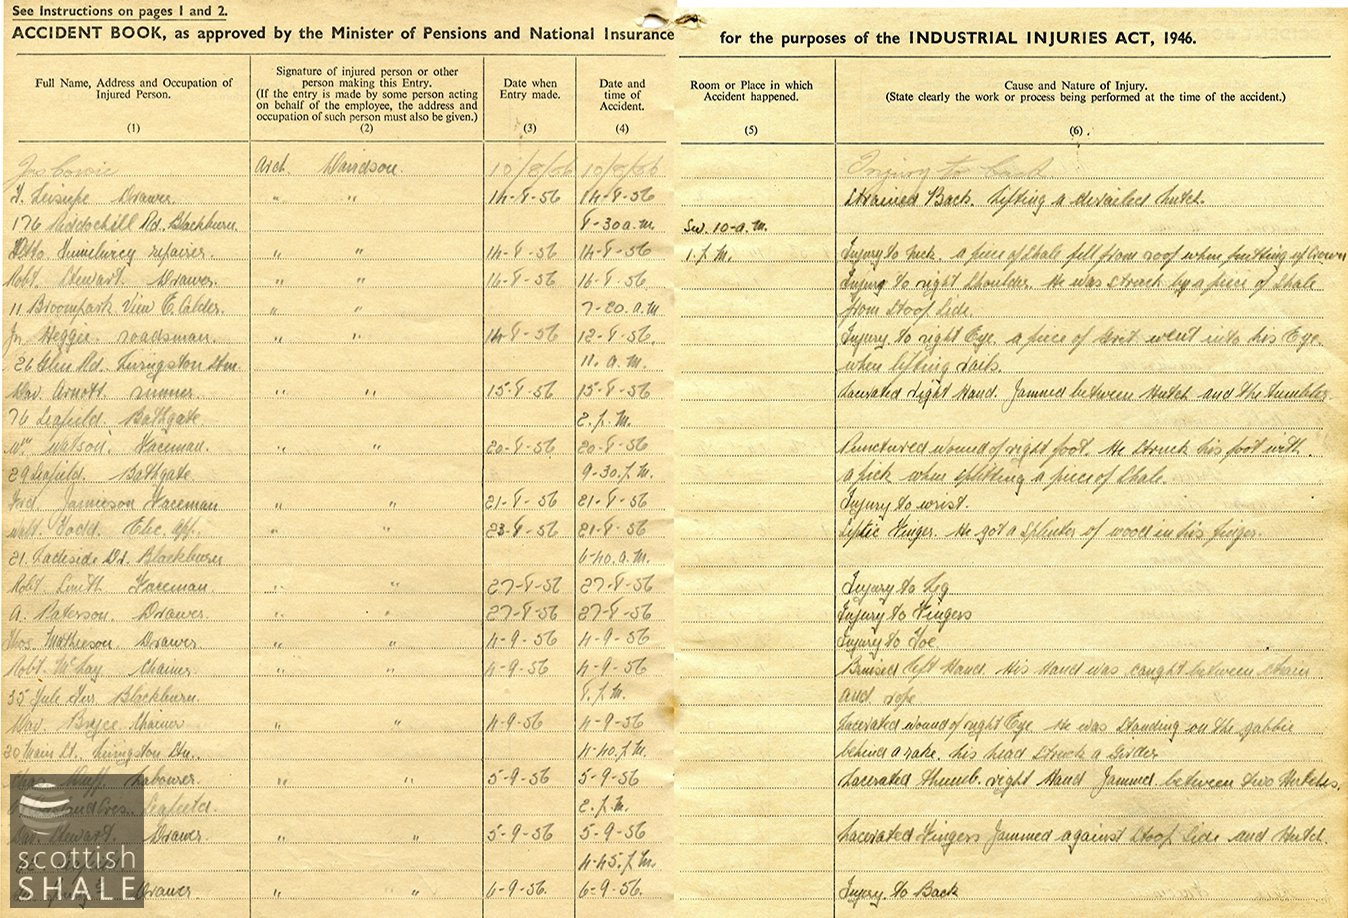 See Instructions on pages 1 and 2.
ACCIDENT BOOK, as approved by the Minister of Pensions and National Insurance for the purposes of the INDUSTRIAL INJURIES ACT, 1946.
Full Name, Address and Occupation of Injured Person. (1)
Signature of injured person or other person making this Entry. (If the entry is made by some person acting on behalf of the employee, the address and occupation of such person must also be given.) (2)
Date when Entry made. (3)
Date and time of Accident. (4)
Room or Place in which Accident happened. (5)
Cause and Nature of Injury. (State clearly the work or process being performed at the time of the accident.) (6)
Jas Cowie Arch Davidson 10/8/56 10/8/56 Injury to back
Drawer " " 14-8-56 14-8-56 Strained Back. Lifting a derailed hutch.
176 Rd. Blackburn. 8-30 a.m. 10-a.m.
repairer " " 14-8-56 14-8-56 1.p.m. Injury to neck. a piece of shale fell from roof when putting up Crown
Robt Stewart Drawer " " 16-8-56 16-8-56 Injury to right shoulder. He was struck by a piece of shale
11 Broompark View E. Calder. " " 7-20.a.m from Stoop Side.
Jn Heggie roadsman. " " 14-8-56 12-8-56 Injury to right Eye. a piece of Grit went into his Eye
26 Glen Rd. Livingston Stn. 11. a.m. when lifting rails.
Dav. Arnott runner " " 15-8-56 15-8-56 Lacerated right Hand. Jammed between Hutch and the tumbler.
76 Seafield. Bathgate 2.p.m.
Wm Watson. Faceman. " " 20-8-56 20-8-56 Punctured wound of right foot. He struck his foot with
29 Seafield. Bathgate 9-30.p.m. a pick when splitting a piece of shale.
Fred. Jamieson Faceman " " 21-8-56 21-8-56 Injury to wrist.
Walt. Todd. Elec. App. " " 23-8-56 21-8-56 Septic Finger. He got a splinter of wood in his finger.
21. Blackburn 6-40.a.m.
Robt. Smith Faceman " " 27-8-56 27-8-56 Injury to Leg
A. Paterson. Drawer " " 27-8-56 27-8-56 Injury to Fingers
Thos. Mathieson. Drawer. " " 4-9-56 4-9-56 Injury to Toe.
Robt. McKay Chainer " " 4-9-56 4-9-56 Bruised left Hand. His Hand was caught between chain
35 Yule Ter Blackburn. 8.p.m. and rope
Dav. Bryce Chainer " " 4-9-56 4-9-56 Lacerated wound of right Eye. He was standing on the gabbie
30 Main St. Livingston Stn. 4-40.p.m. behind a rake. his head struck a Girder
Duff. Labourer. " " 5-9-56 5-9-56 Lacerated thumb. right Hand Jammed between two Hutches.
Cres. Seafield. 2.p.m.
Dav. Stewart Drawer. " " 5-9-56 5-9-56 Lacerated Fingers Jammed against Stoop Side and Hutch.
4-45.p.m.
Drawer " " 6-9-56. 6-9-56. Injury. to Back
scottish
SHALE